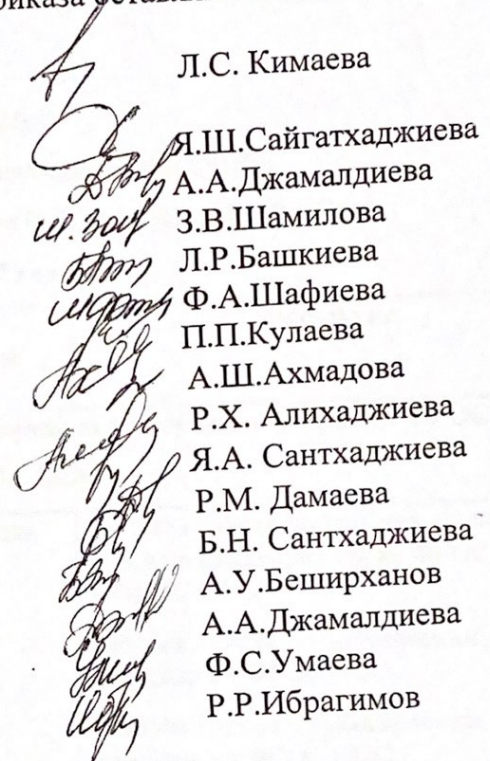 Л.С. Кимаева
Я.Ш.Сайгатхаджиева
А.А.Джамалдиева
З.В.Шамилова
Л.Р.Башкиева
Ф.А.Шафиева
П.П.Кулаева
А.Ш.Ахмадова
Р.Х. Алихаджиева
Я.А. Сантхаджиева
Р.М. Дамаева
Б.Н. Сантхаджиева
А.У.Беширханов
А.А.Джамалдиева
Ф.С.Умаева
Р.Р.Ибрагимов